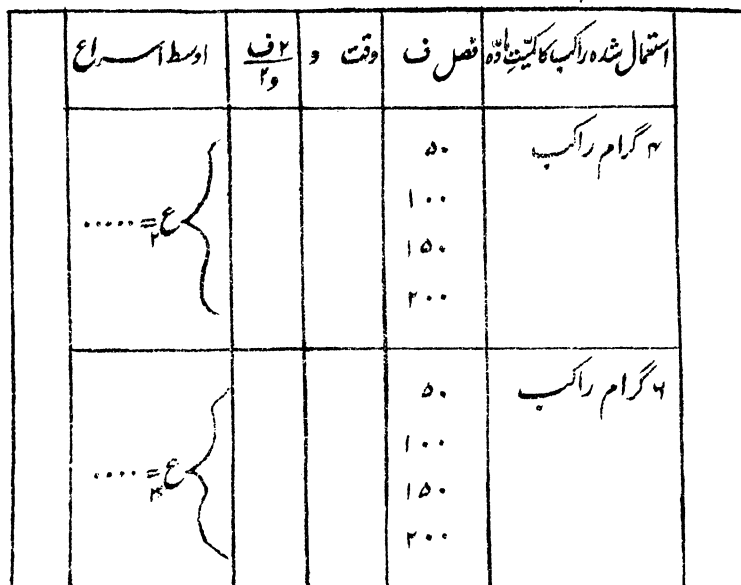 استعمال شدہ راکب کا کمیّتِ مادّہ فصل ف وقت و ۲ف/و۲ اوسط اسراع
۴ گرام راکب
۵۰
۱۰۰
۱۵۰
۲۰۰
ع۲ = .....
۶ گرام راکب
۵۰
۱۰۰
۱۵۰
۲۰۰
ع = ....